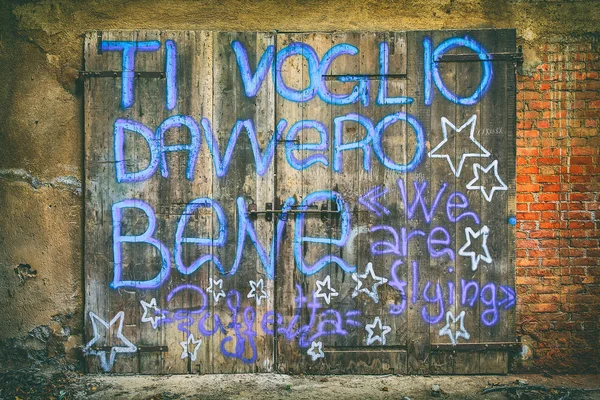 Ti VOGLiO
DAVVeRO
Bene
<We
are
flying>